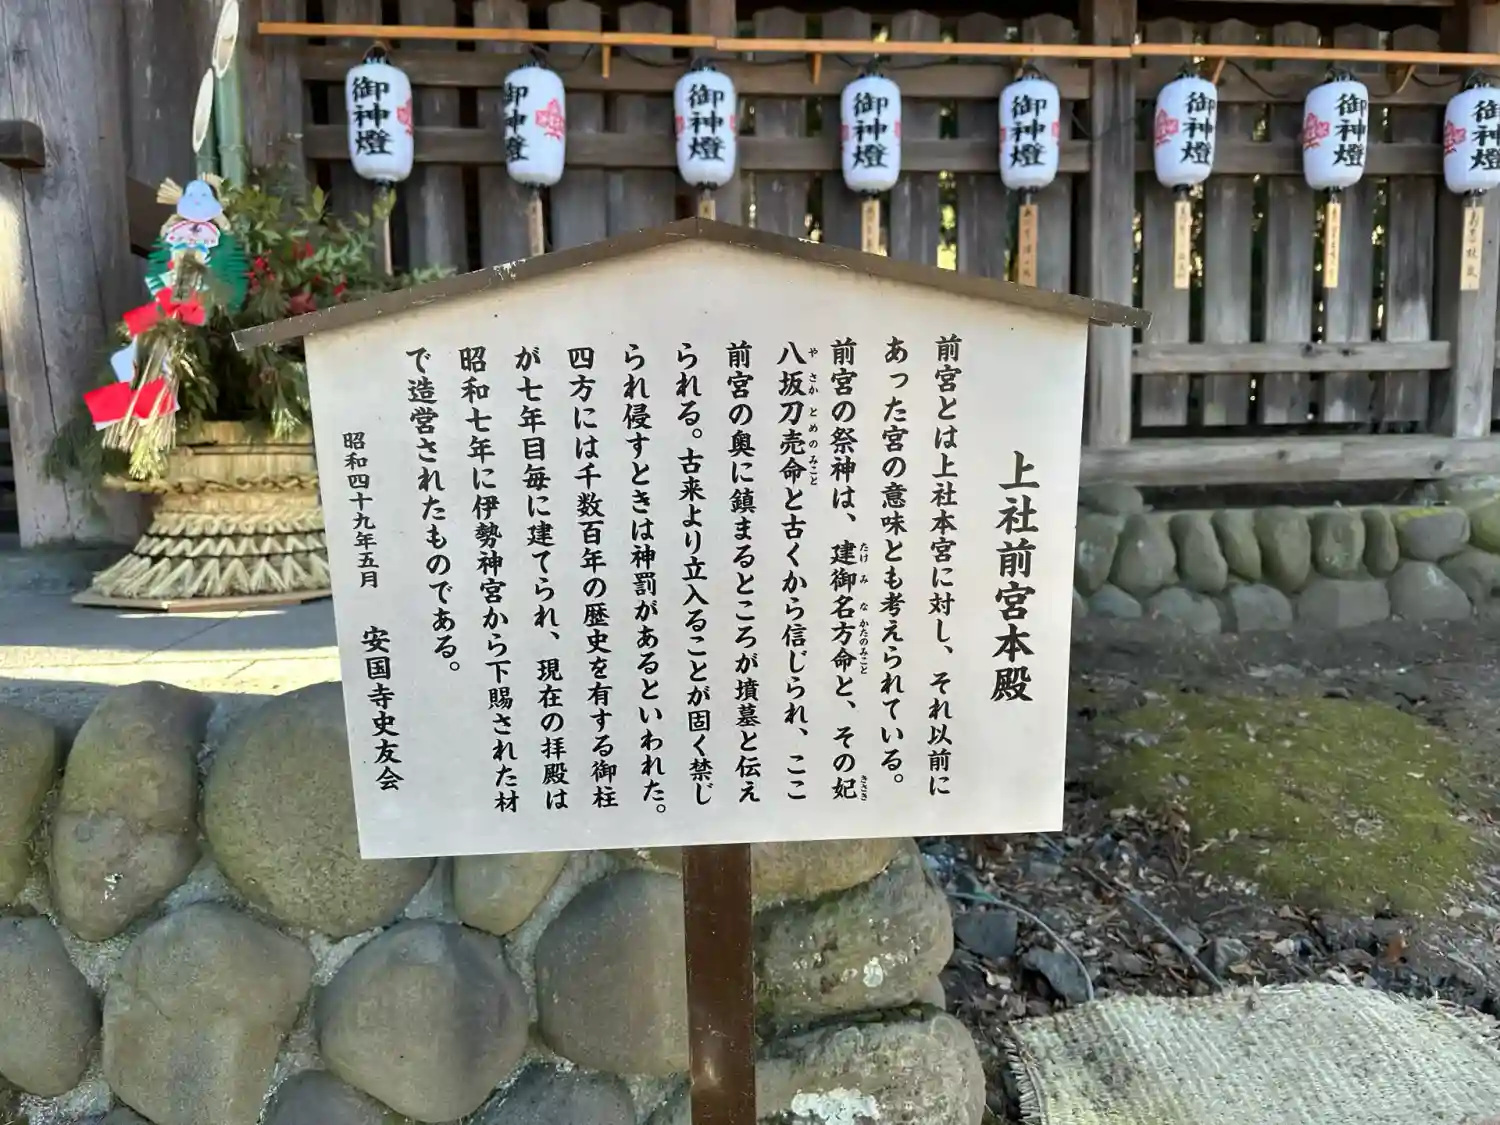 御神燈
御神燈
御神燈
御神燈
御神燈
御神燈
御神燈
御神燈
上社前宮本殿
前宮とは上社本宮に対し、それ以前に
あった宮の意味とも考えられている。
前宮の祭神は、建御名方命と、その妃
たけみなかたのみこと
きさき
八坂刀売命と古くから信じられ、ここ
やさかとめのみこと
前宮の奥に鎮まるところが墳墓と伝え
られる。古来より立入ることが固く禁じ
られ侵すときは神罰があるといわれた。
四方には千数百年の歴史を有する御柱
が七年目毎に建てられ、現在の拝殿は
昭和七年に伊勢神宮から下賜された材
で造営されたものである。
昭和四十九年五月　安国寺史友会